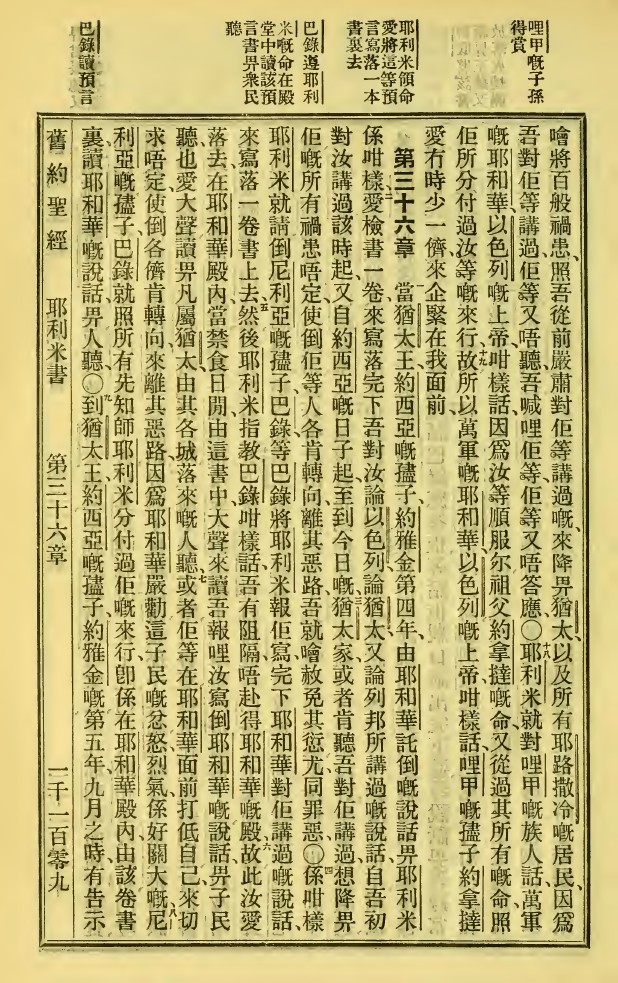 哩甲嘅子孫
得賞
耶利米領命
愛將這等預
言寫落一本
書裏去
巴錄遵耶利
米嘅命在殿
堂中讀該預
言書畀衆民
聽
巴錄讀預言
噲將百般禍患、照吾從前嚴肅對佢等講過嘅、來降畀猶太、以及所有耶路撒冷嘅居民、因爲
吾對佢等講過、佢等又唔聽、吾喊哩佢等、佢等又唔答應〇十八耶利米就對哩甲嘅族人話、萬軍
嘅耶和華、以色列嘅上帝、咁樣話、因爲汝等順服尔祖父約拿撻嘅命、又從過其所有嘅命、照
佢所分付過汝等嘅來行、十九故所以萬軍嘅耶和華、以色列嘅上帝、咁樣話、哩甲嘅孻子約拿撻
愛冇時少一儕來企緊在我面前、
第三十六章　一當猶太王約西亞嘅孻子、約雅金第四年、由耶和華託倒嘅說話畀耶利米
係咁樣、二愛檢書一卷來寫落完下吾對汝論以色列、論猶太、又論列邦所講過嘅說話、自吾初
對汝講過該時起、又自約西亞嘅日子起、至到今日嘅、三猶太家或者肯聽吾對佢講過、想降畀
佢嘅所有禍患、唔定使倒佢等人各肯轉向離其惡路、吾就噲赦免其愆尤同罪惡〇四係咁樣
耶利米就請倒尼利亞嘅孻子、巴錄等巴錄將耶利米報佢寫完下耶和華對佢講過嘅說話、
來寫落一卷書上去、五然後耶利米指教巴錄咁樣話、吾有阻隔、唔赴得耶和華嘅殿、六故此汝愛
落去在耶和華殿內、當禁食日閒由這書中大聲來讀吾報哩汝寫倒耶和華嘅說話、畀子民
聽、也愛大聲讀畀凡屬猶太由其各城落來嘅人聽、七或者佢等在耶和華面前打低自己來切
求、唔定使倒各儕肯轉向來離其惡路、因爲耶和華嚴勸這子民嘅忿怒烈氣、係好關大嘅、八尼
利亞嘅孻子巴錄、就照所有先知師耶利米分付過佢嘅來行、卽係在耶和華殿內、由該卷書
裏讀耶和華嘅說話畀人聽、〇九到猶太王約西亞嘅孻子、約雅金嘅第五年九月之時、有告示
舊約聖經　耶利米書　第三十六章　一千一百零九